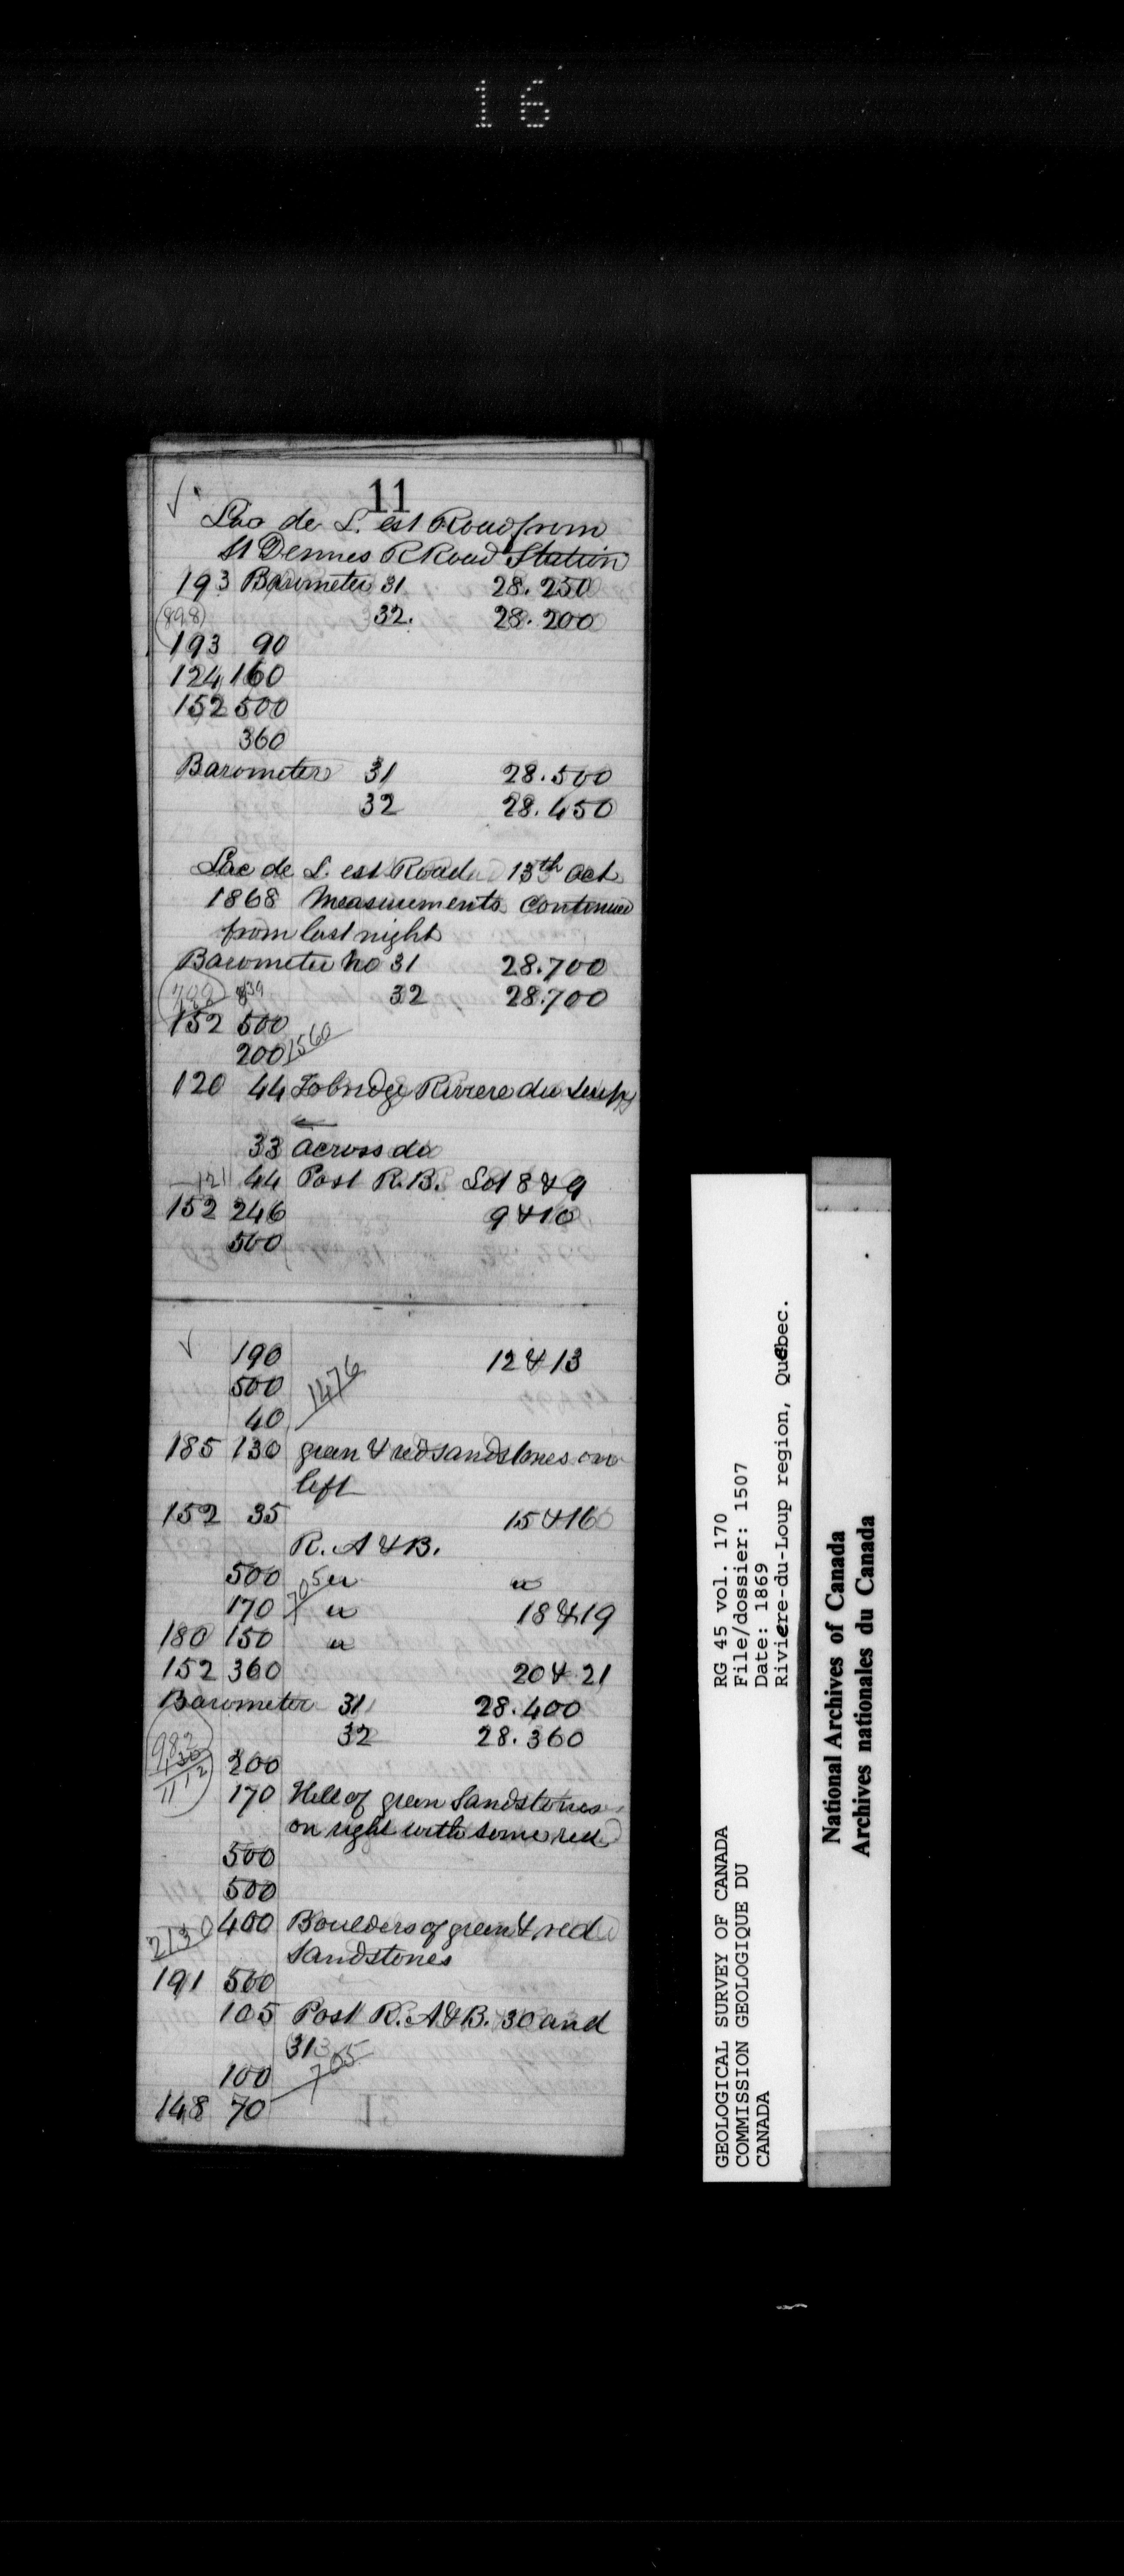 16
11
Lac de L. est Road from
St Dennes R Road Station
193 Barometer 31 28.250
(898) 32. 28.200
193 90
124 160
152 500
360
Barometer 31 28.500
32 28.450
Lac de L. est Road 13th Oct
1868 Measurements continued
from last night
Barometer No 31 28.700
32 28.700
152 500
200 1560
120 44 To bridge Riviere du Loup
33 across do
121 44 Post R.B. Lot 8 & 9
152 246 9 & 10
500
190 12 & 13
500 1476
40
185 130 green & red sandstones on
left
152 35 15 & 16
R. A & B.
500 " "
170 705 " 18 & 19
180 150 "
152 360 20 & 21
Barometer 31 28.400
32 28.360
982 200
130
1112
170 Hill of green Sandstones
on right with some red
500
500
2130 400 Boulders of green & red
Sandstones
191 500
105 Post R. A & B. 30 and
31
100 705
148 70
GEOLOGICAL SURVEY OF CANADA RG 45 vol. 170
COMMISSION GEOLOGIQUE DU File/dossier: 1507
CANADA Date: 1869
Rivière-du-Loup region, Québec.
National Archives of Canada
Archives nationales du Canada